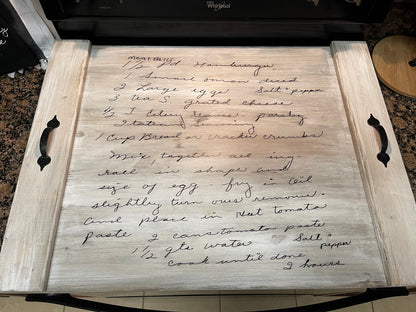 Whirlpool
MEAT BALLS
1½ Pd Hamburger
1 Small onion diced
2 Large eggs Salt + pepper
3 tea S. grated cheese
½ T parsley
1 Cup Bread or cracker crumbs
Mix together all ing-
roll in shape and
size of egg - fry in Oil
slightly turn over remove -
and place in Hot tomato
paste - 2 cans tomato paste
1½ qts water Salt + pepper
cook until done
2 hours